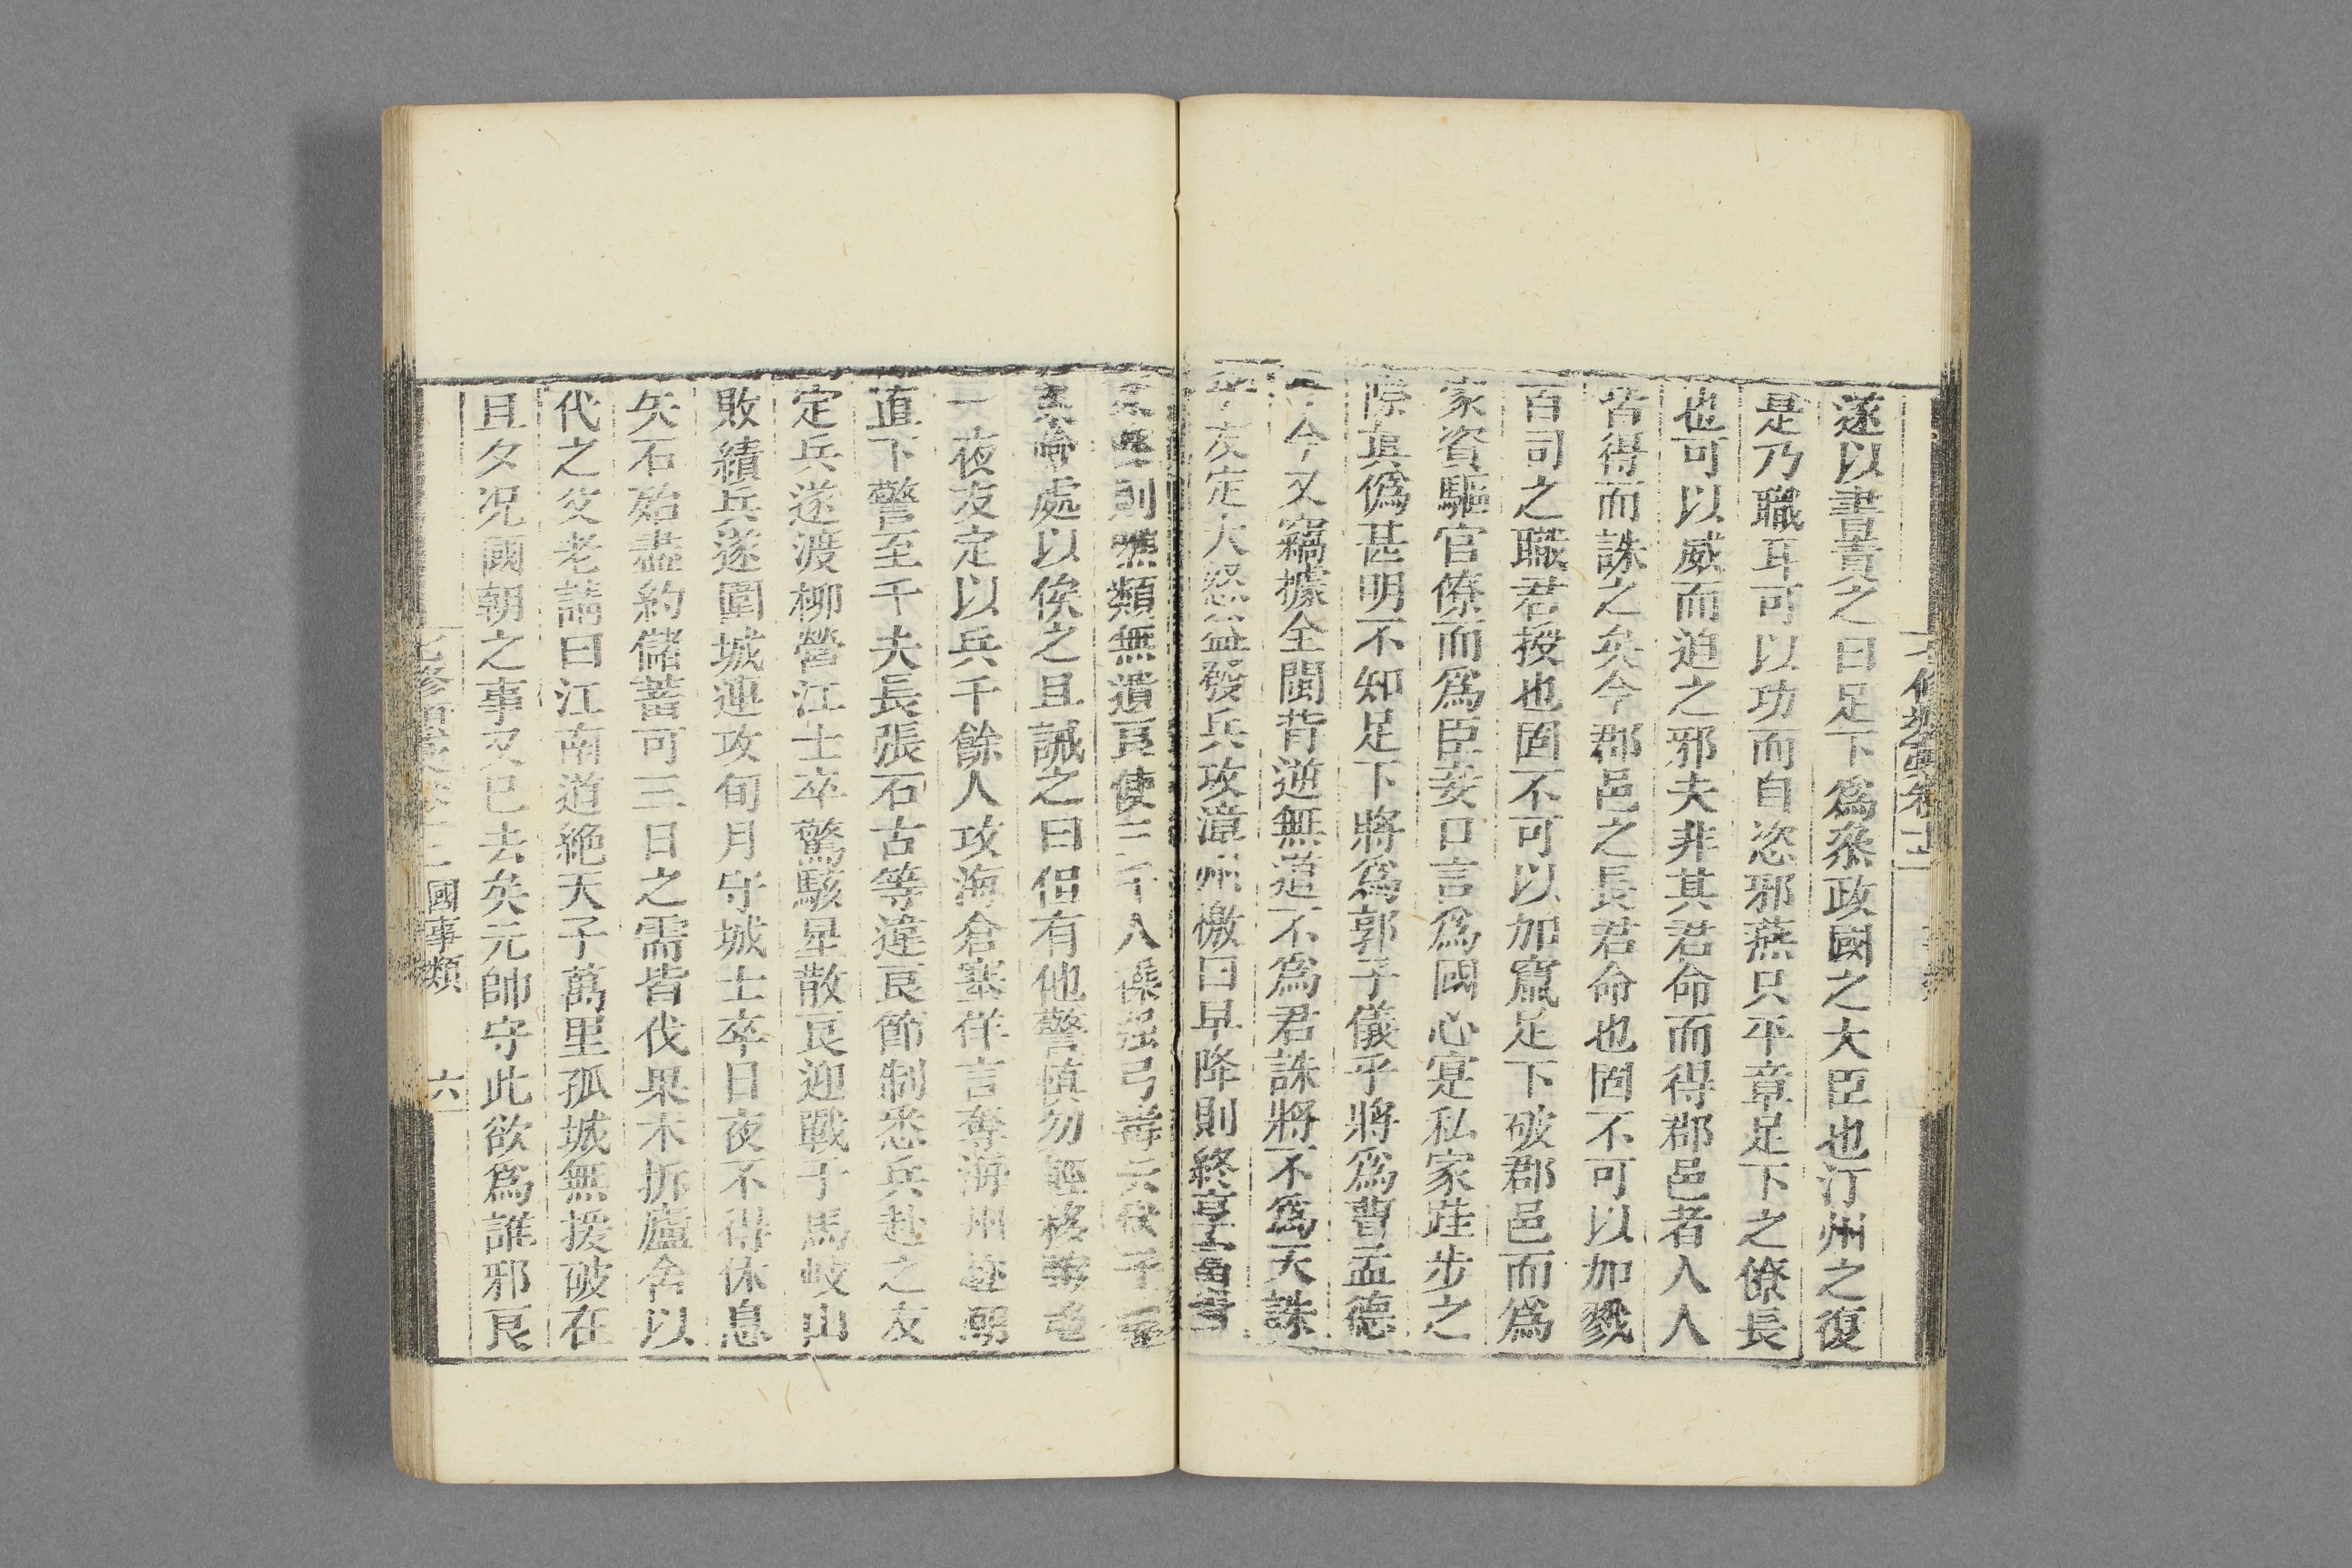 遂以書責之曰足下爲叅政國之大臣也汀州之復
是乃職耳可以功而自恣邪燕只平章足下之僚長
也可以威而迫之邪夫非其君命而得郡邑者人人
皆得而誅之矣今郡邑之長君命也固不可以加戮
百司之職君授也固不可以加竄足下破郡邑而爲
家資驅官僚而爲臣妾口言爲國心寔私家跬步之
際眞僞甚明不知足下將爲郭子儀乎將爲曹孟德
今又竊據全閩背逆無道不爲君誅將不爲天誅
友定大怒益發兵攻漳州檄曰早降則終享富貴
則噍類無遺良使三千人
處以俟之且誡之曰但有他警慎勿輕移
一夜友定以兵千餘人攻海倉寨佯言奪海州
直下警至千夫長張石古等違良節制悉兵赴之友
定兵遂渡柳營江士卒驚駭星散良迎戰于馬岐山
敗績兵遂圍城迎攻旬月守城士卒日夜不得休息
矢石殆盡約儲蓄可三日之需皆伐果木拆廬舍以
代之父老請曰江南道絶天子萬里孤城無援破在
旦夕况國朝之事又已去矣元帥守此欲爲誰邪良
國事類
六